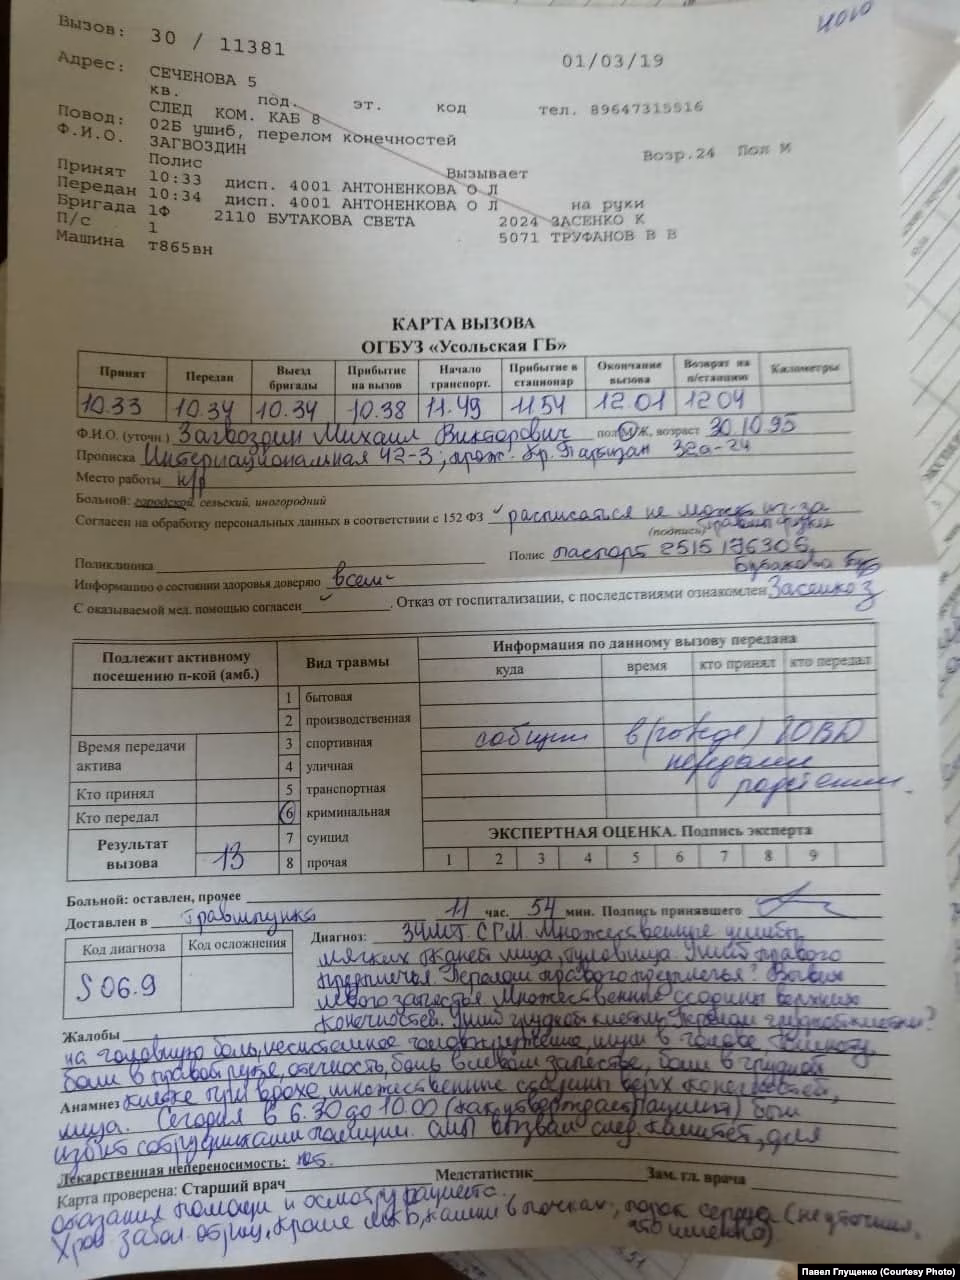 Вызов: 30 / 11381
01/03/19
Адрес: СЕЧЕНОВА 5
кв. под. эт. код тел. 89647315516
СЛЕД КОМ. КАБ 8
Повод: 02Б ушиб, перелом конечностей
Ф.И.О. ЗАГВОЗДИН Возр.24 Пол М
Полис Вызывает
Принят 10:33 дисп. 4001 АНТОНЕНКОВА О Л
Передан 10:34 дисп. 4001 АНТОНЕНКОВА О Л на руки
Бригада 1Ф 2110 БУТАКОВА СВЕТА 2024 ЗАСЕНКО К
П/с 1 5071 ТРУФАНОВ В В
Машина т865вн
КАРТА ВЫЗОВА
ОГБУЗ «Усольская ГБ»
Принят Передан Выезд бригады Прибытие на вызов Начало транспорт. Прибытие в стационар Окончание вызова Возврат на п/станцию Километры
10.33 10.34 10.34 10.38 11.49 11.54 12.01 12.04
Ф.И.О. (уточн.) Загвоздин Михаил Викторович пол М/Ж, возраст 30.10.95
Прописка Интернациональная 42-3; прож. Кр. Партизан 32а-24
Место работы н/р
Больной: городской, сельский, иногородний
Согласен на обработку персональных данных в соответствии с 152 ФЗ расписаться не может из-за
(подпись) травмы руки
Поликлиника Полис паспорт 2515 176306,
Информацию о состоянии здоровья доверяю всем
С оказываемой мед. помощью согласен . Отказ от госпитализации, с последствиями ознакомлен Засенко
Подлежит активному посещению п-кой (амб.) Вид травмы Информация по данному вызову передана
куда время кто принял кто передал
1 бытовая
2 производственная
Время передачи актива 3 спортивная
4 уличная
Кто принял 5 транспортная
Кто передал 6 криминальная
Результат вызова 13 7 суицид ЭКСПЕРТНАЯ ОЦЕНКА. Подпись эксперта
8 прочая 1 2 3 4 5 6 7 8 9
Больной: оставлен, прочее
Доставлен в травмпункт 11 час. 54 мин. Подпись принявшего
Код диагноза Код осложнения
S 06.9
Диагноз: ЗЧМТ. СГМ. Множественные ушибы
мягких тканей лица, туловища. Ушиб правого
предплечья. Перелом правого предплечья? Вывих
левого запястья. Множественные ссадины верхних
конечностей. Ушиб грудной клетки. Перелом грудной клетки?
Жалобы на головную боль, несистемное головокружение, шум в голове, тошноту,
боли в правой руке, отечность, боль в левом запястье, боли в грудной
Анамнез клетке при вдохе, множественные ссадины верх. конечностей,
лица. Сегодня в 6.30 до 10.00 (как утверждает пациент) был
избит сотрудниками полиции. СМП вызвал след. комитет, для
Лекарственная непереносимость: нет.
Карта проверена: Старший врач Медстатистик Зам. гл. врача
оказания помощи и осмотра пациента.
Хрон. забол. отриц., кроме МКБ, камни в почках, порок сердца (не уточнил,
что именно).
Павел Глущенко (Courtesy Photo)